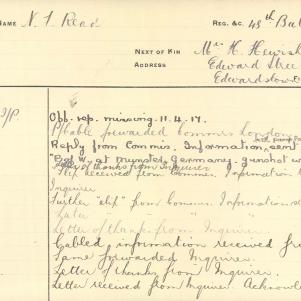 NAME N. T. Read REG. &C. 48th Bat
NEXT OF KIN Mrs H. Hewish
ADDRESS Edward Stre
Edwardstown
Off. rep. missing 11.4.17.
P'cable forwarded Commis London
Reply from Commis. Information, sent
"P of W. at Munster, Germany. Gunshot w
Letter of thanks from Inquirer
Slip received from Commis. Information
Inquirer
Further "slip" from Commis. Information
Letter of thanks from Inquirer.
Cabled information received fr
Same forwarded Inquirer.
Letter of thanks from Inquirer.
Letter received from Inquirer. Acknowl